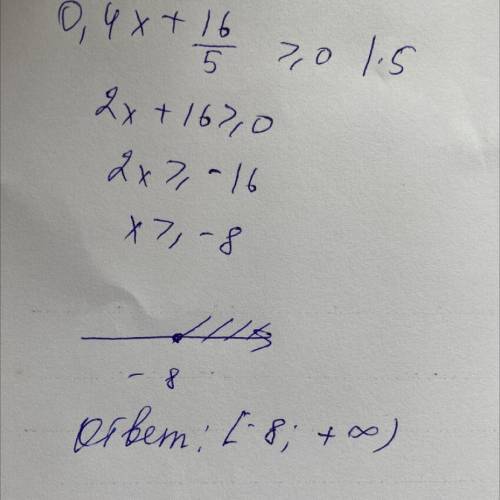 0,4x + 16/5 ⩾ 0 | · 5
2x + 16 ⩾ 0
2x ⩾ -16
x ⩾ -8
-8
Ответ: [-8; +∞)